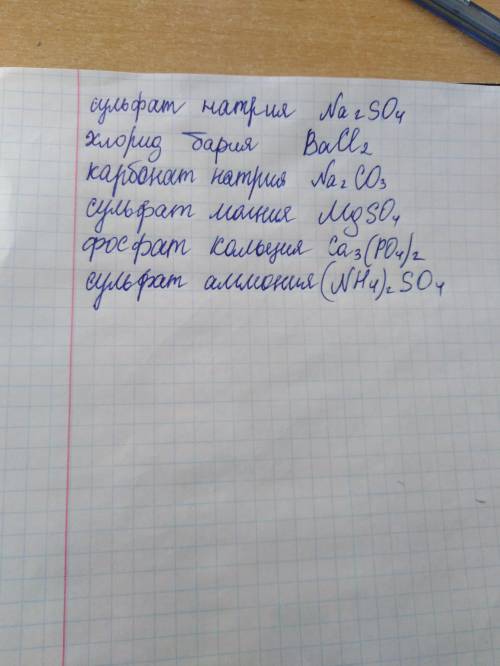 сульфат натрия Na₂SO₄
хлорид бария BaCl₂
карбонат натрия Na₂CO₃
сульфат магния MgSO₄
фосфат кальция Ca₃(PO₄)₂
сульфат аммония (NH₄)₂SO₄